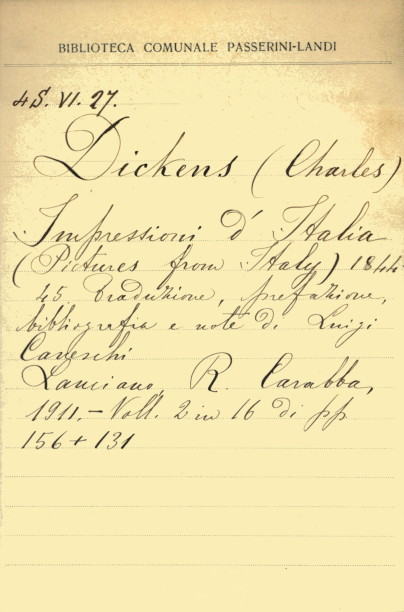 BIBLIOTECA COMUNALE PASSERINI-LANDI
4S. VI. 27.
Dickens (Charles)
Impressioni d'Italia
(Pictures from Italy) 1844-
45 Traduzione, prefazione,
bibliografia e note di Luigi
Careschi
Lanciano, R. Carabba,
1911. - Voll. 2 in 16 di pp
156 + 131